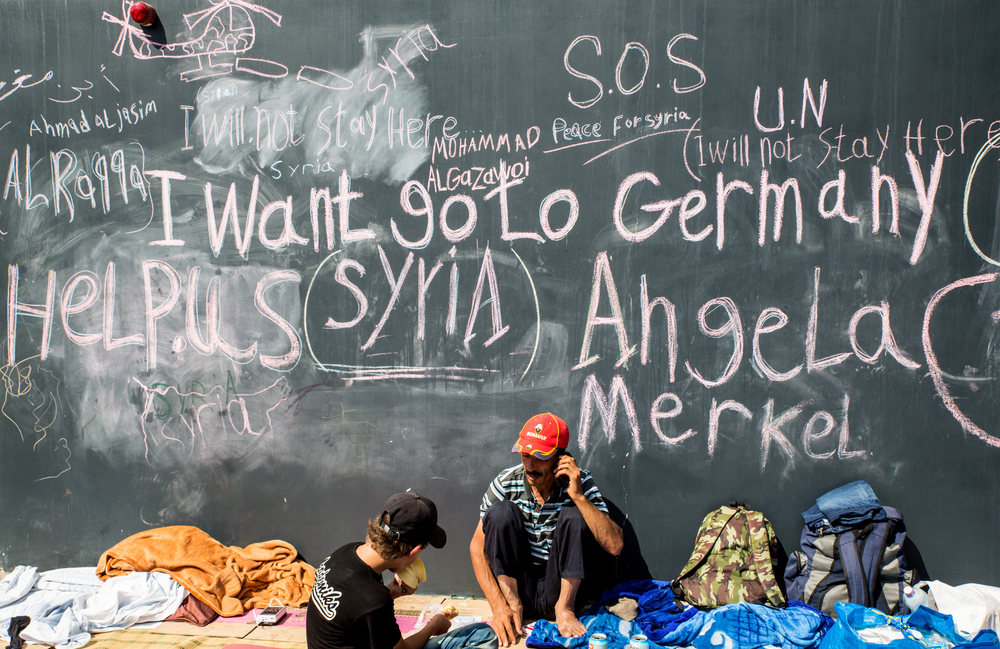 Syria
S.O.S
U.N
Ahmad aljasim
I will not stay Here
MOHAMMAD
ALGAZAWOI
Peace For syria
(I will not stay Here
Syria
AL Raqqa
I Want go to Germany
HeLP.us (syriA)
AngeLa
MerKeL
SyriA
Syria
RENAULT